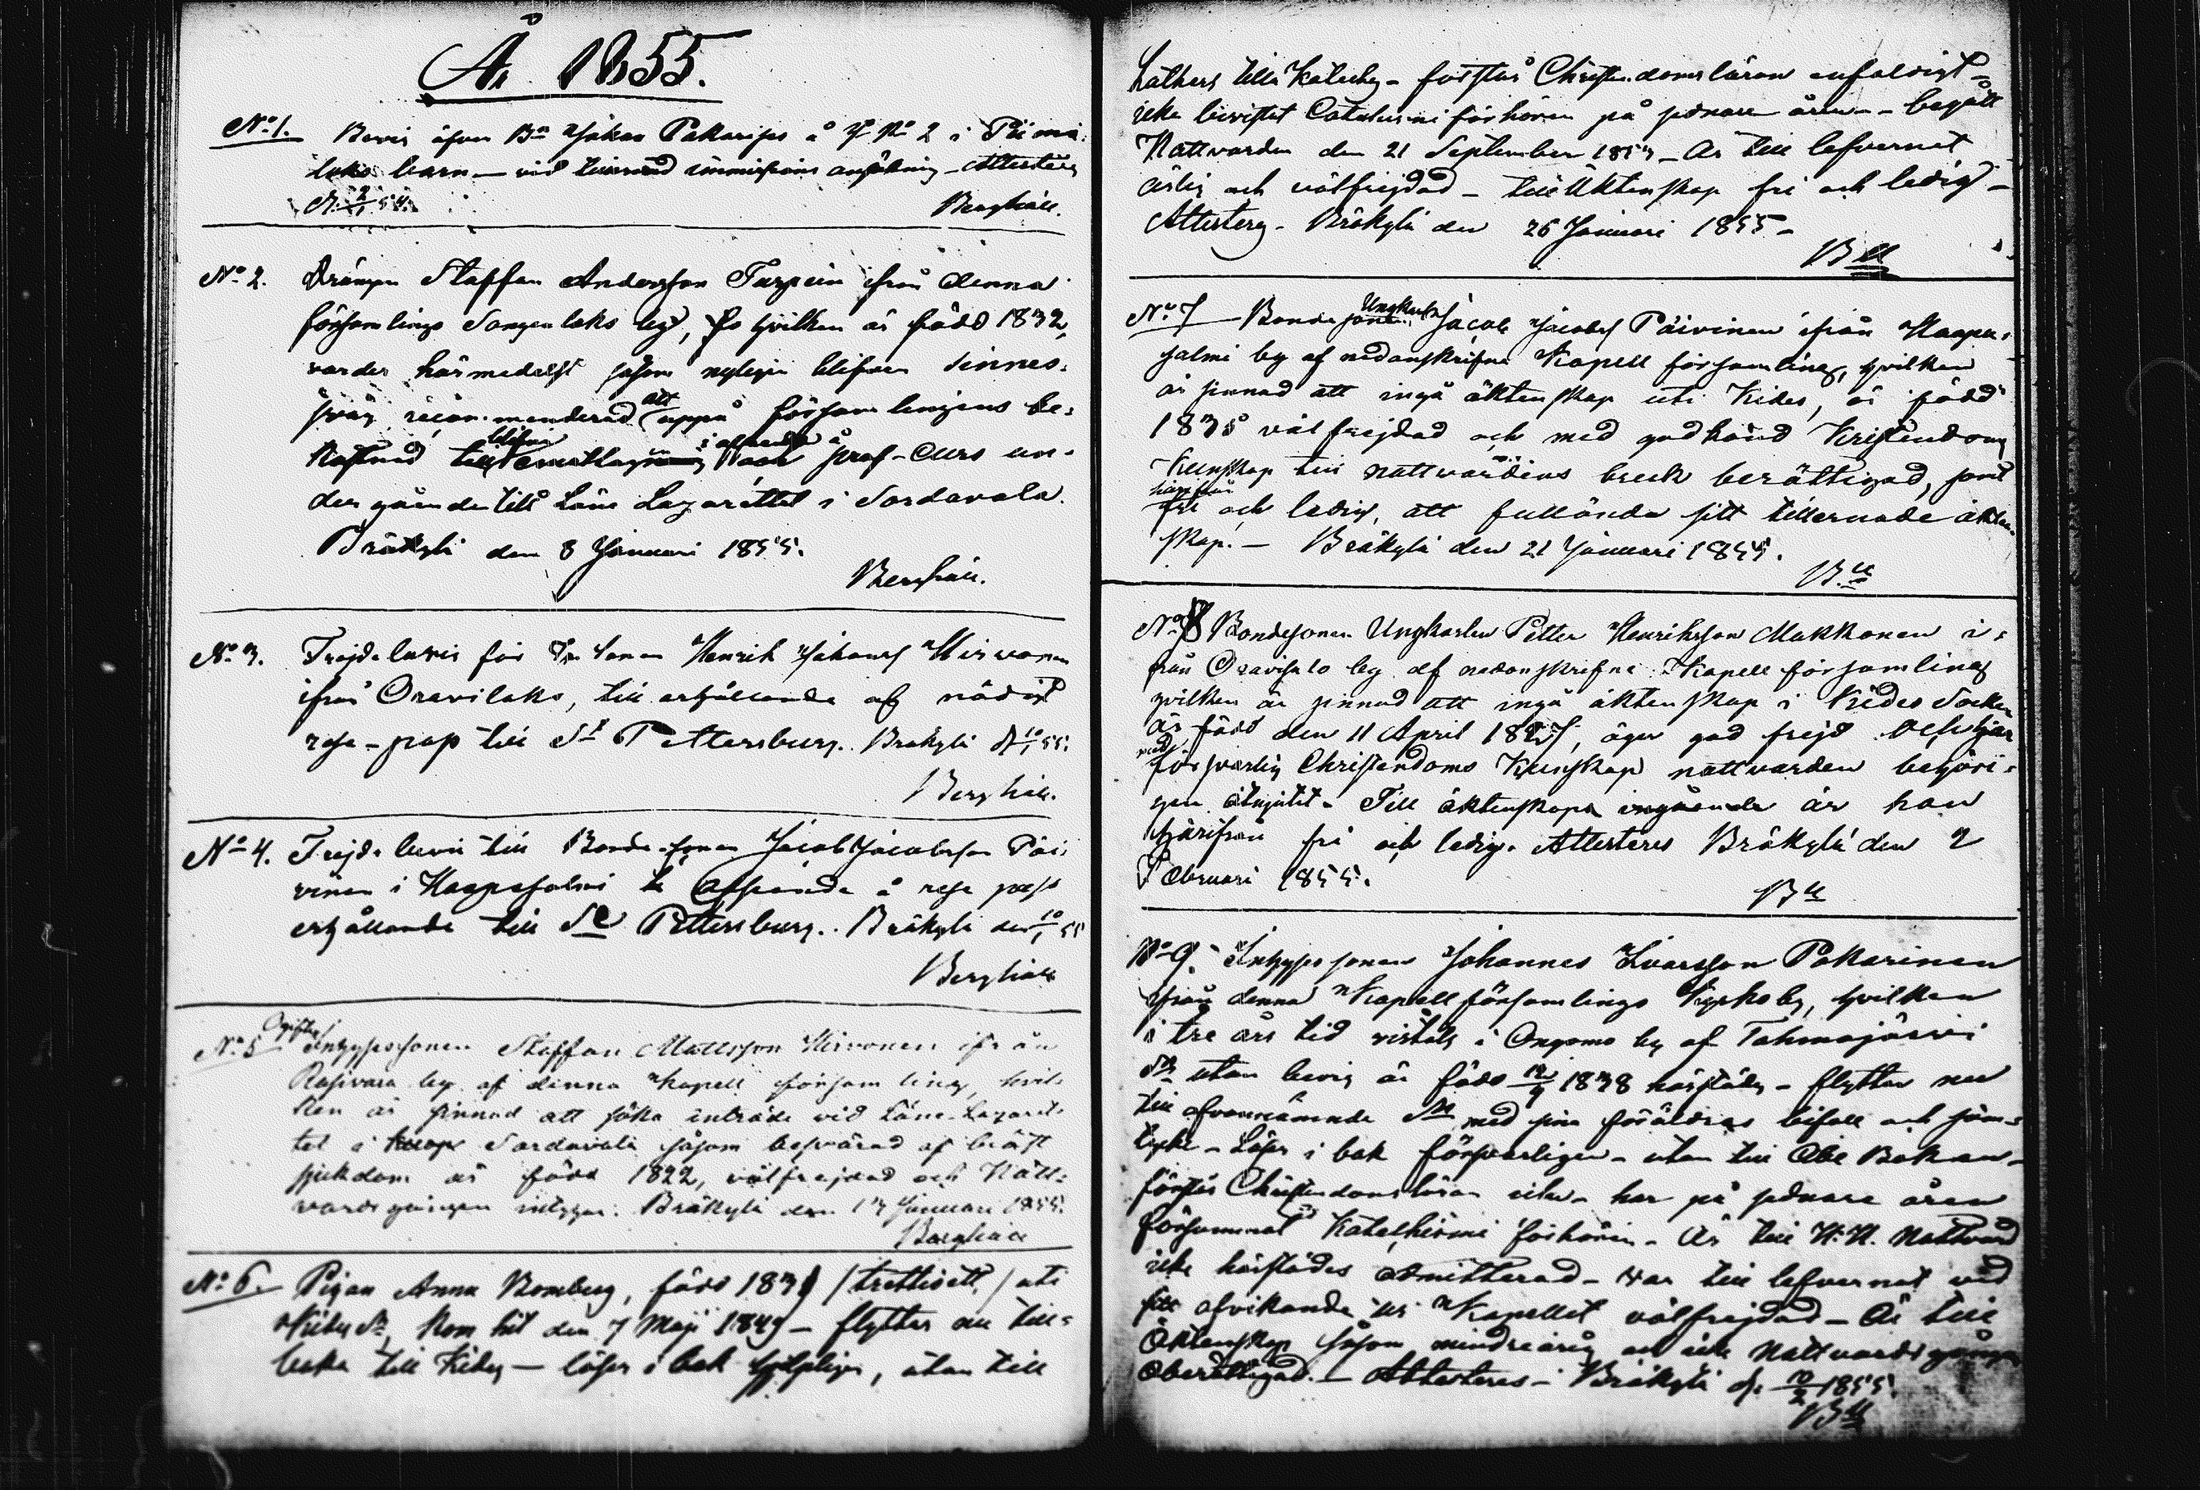 År 1855.
No 1. Bevis öfver Bn Johan Pakarises å No 2 i
laks barn — vid ansökning — Attesteras
Berghäll.
No 2. Drängen Staffan Andersson Turpein ifrån denna
församlings Sangenlaks by, hvilken är född 1832,
varder härmedelst såsom nyligen blifven sinnes-
svag recommenderad att uppå församlingens be-
kostnad till blifva och prof-Curs un-
dergående till Läns Lazarettet i Sordavala.
Bräkylä den 8 Januari 1855.
Berghäll.
No 3. Frejdebevis för Henrik Johans Hirvonen
ifrån Oravilaks, till erhållande af nödigt
rese-pass till St Pettersburg. Bräkylä d. 10/1 55.
Berghäll.
No 4. Frejdebevis till Bondesonen Jacob Jacobsson Päi-
vinen i Haapasalmi å rese pass
erhållande till St Pettersburg. Bräkylä den 10/1 55
Berghäll
No 5 Ogifte Inhysessonen Staffan Mattsson Hirvonen ifrån
Rasivara by af denna Kapell församling, hvil-
ken är sinnad att söka inträde vid Läns-Lazaret-
tet i Sordavala såsom besvärad af
sjukdom är född 1822, välfrejdad och Natt-
vardsgången . Bräkylä den 17 Januari 1855.
Berghäll
No 6. Pigan Anna Bomberg, född 1831 /trettioett,/ uti
Kides Sn, kom hit den 7 Maji 1849 — flyttar nu till-
baka till Kides — läser i bok hjelpligen, utan till
Luthers lilla Kateches — förstår Christendoms läran enfaldigt —
icke bevistat Catechismi förhören på sednare åren — begått
Nattvarden den 21 September 1853 — Är till lefvernet
ärlig och välfrejdad — till Äktenskap fri och ledig —
Attesteras. Bräkylä den 26 Januari 1855 —
Bll
No 7 Bondesonen Ungkarlen Jacob Jacobss Päivinen ifrån Haapa-
salmi by af nedanskrifne Kapell församling, hvilken
är sinnad att ingå äktenskap uti Kides, är född
1835 välfrejdad och med godkänd Kristendoms
Kunskap till nattvardens bruk berättigad, samt
härifrån fri och ledig, att fullända sitt tillernade äkten-
skap. — Bräkylä den 21 Januari 1855.
Bll
No 8 Bondesonen Ungkarlen Petter Henriksson Makkonen i-
från Oravisalo by af nedanskrifne Kapell församling
hvilken är sinnad att ingå äktenskap i Kides Socken
är född den 11 April 1827, äger god frejd och har
med försvarlig Christendoms Kunskap nattvarden behöri-
gen åtnjutit. Till äktenskaps ingående är han
härifrån fri och ledig. Attesteras Bräkylä den 2
Februari 1855.
Bll
No 9. Inhyses sonen Johannes Ivarsson Pakarinen
ifrån denna Kapellförsamlings by, hvilken
i tre års tid vistats i Ongomo by af Tohmajärvi
Sn utan bevis är född 1838 härstädes — flyttar nu
till ofvannämnde Sn med sina föräldras bifall och sam-
tycke — Läser i bok försvarligen — utan till Abc Boken —
förstår Christendomsläran icke — har på sednare åren
försummat Katechismi förhören — Är till H. H. Nattvard
icke härstädes admitterad — var till lefvernet vid
sitt afvikande ur Kapellet välfrejdad — Är till
Äktenskap såsom minderårig och icke Nattvardsgången
oberättigad. — Attesteras — Bräkylä d. 10/2 1855.
Bll